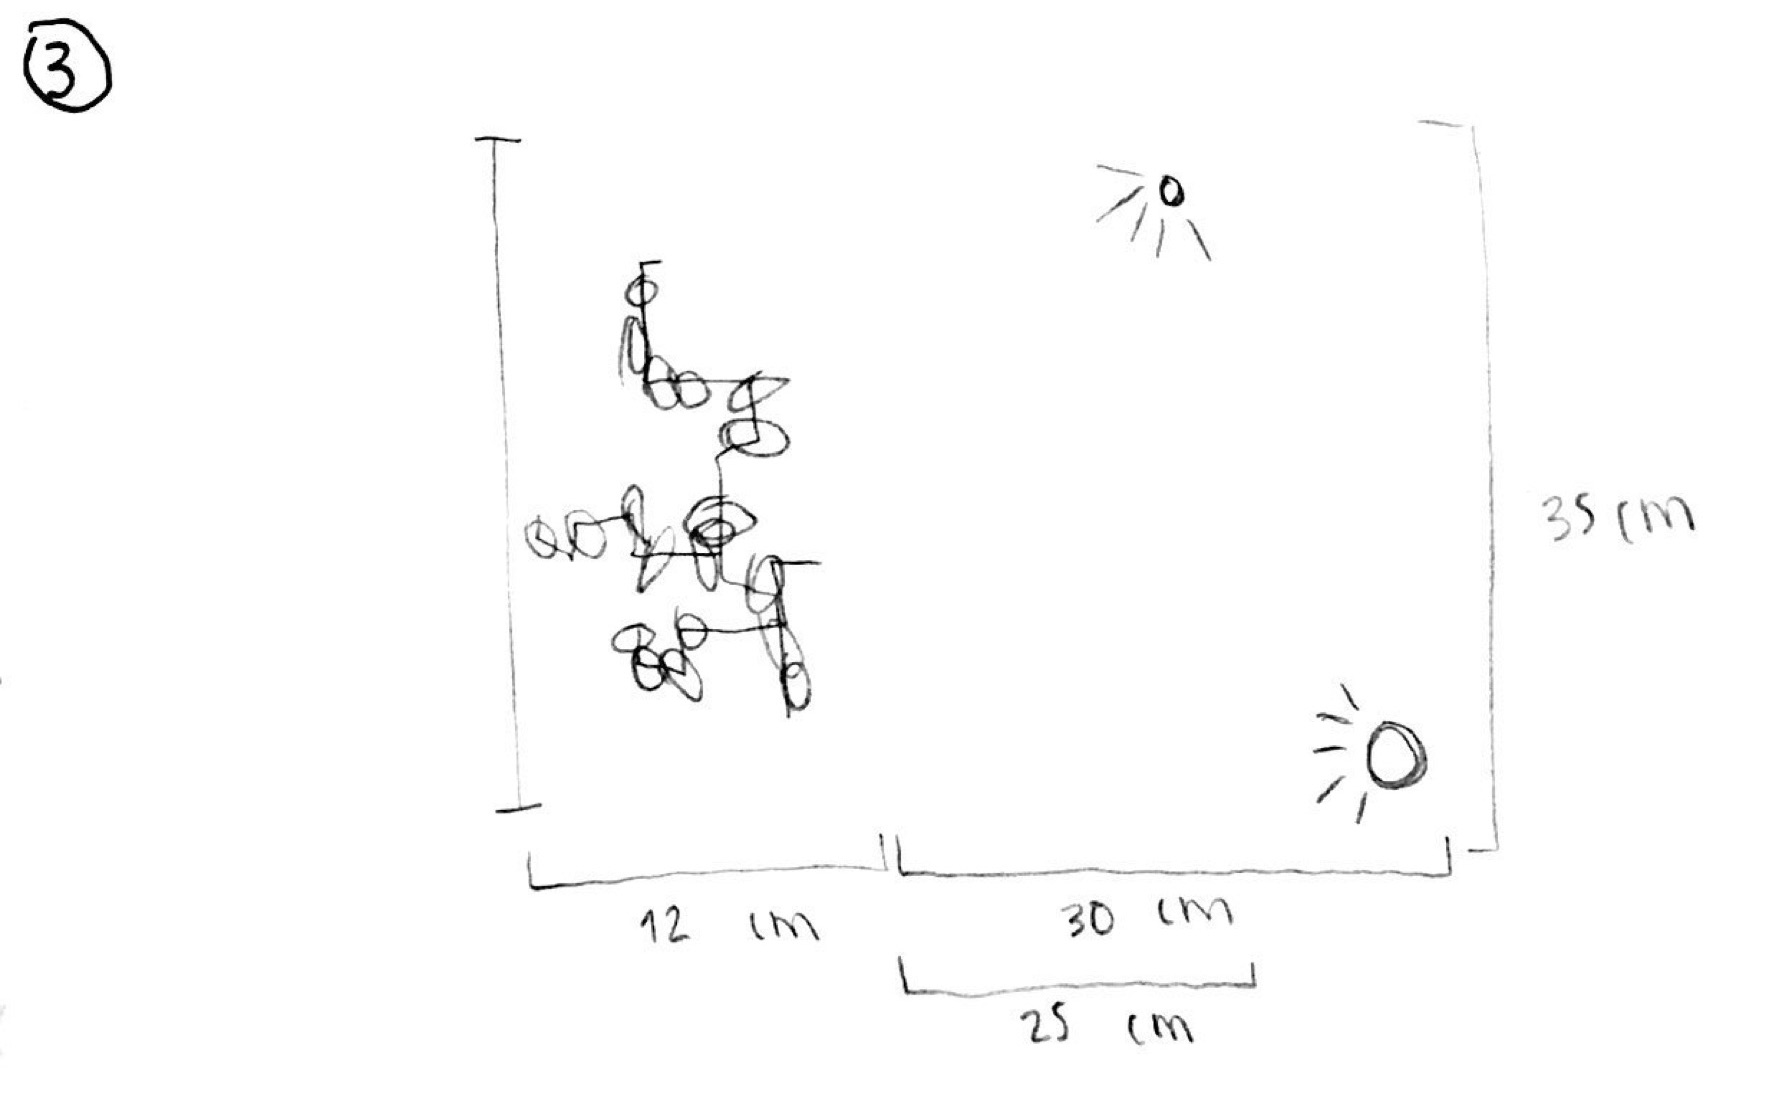 3
35 cm
12 cm
30 cm
25 cm